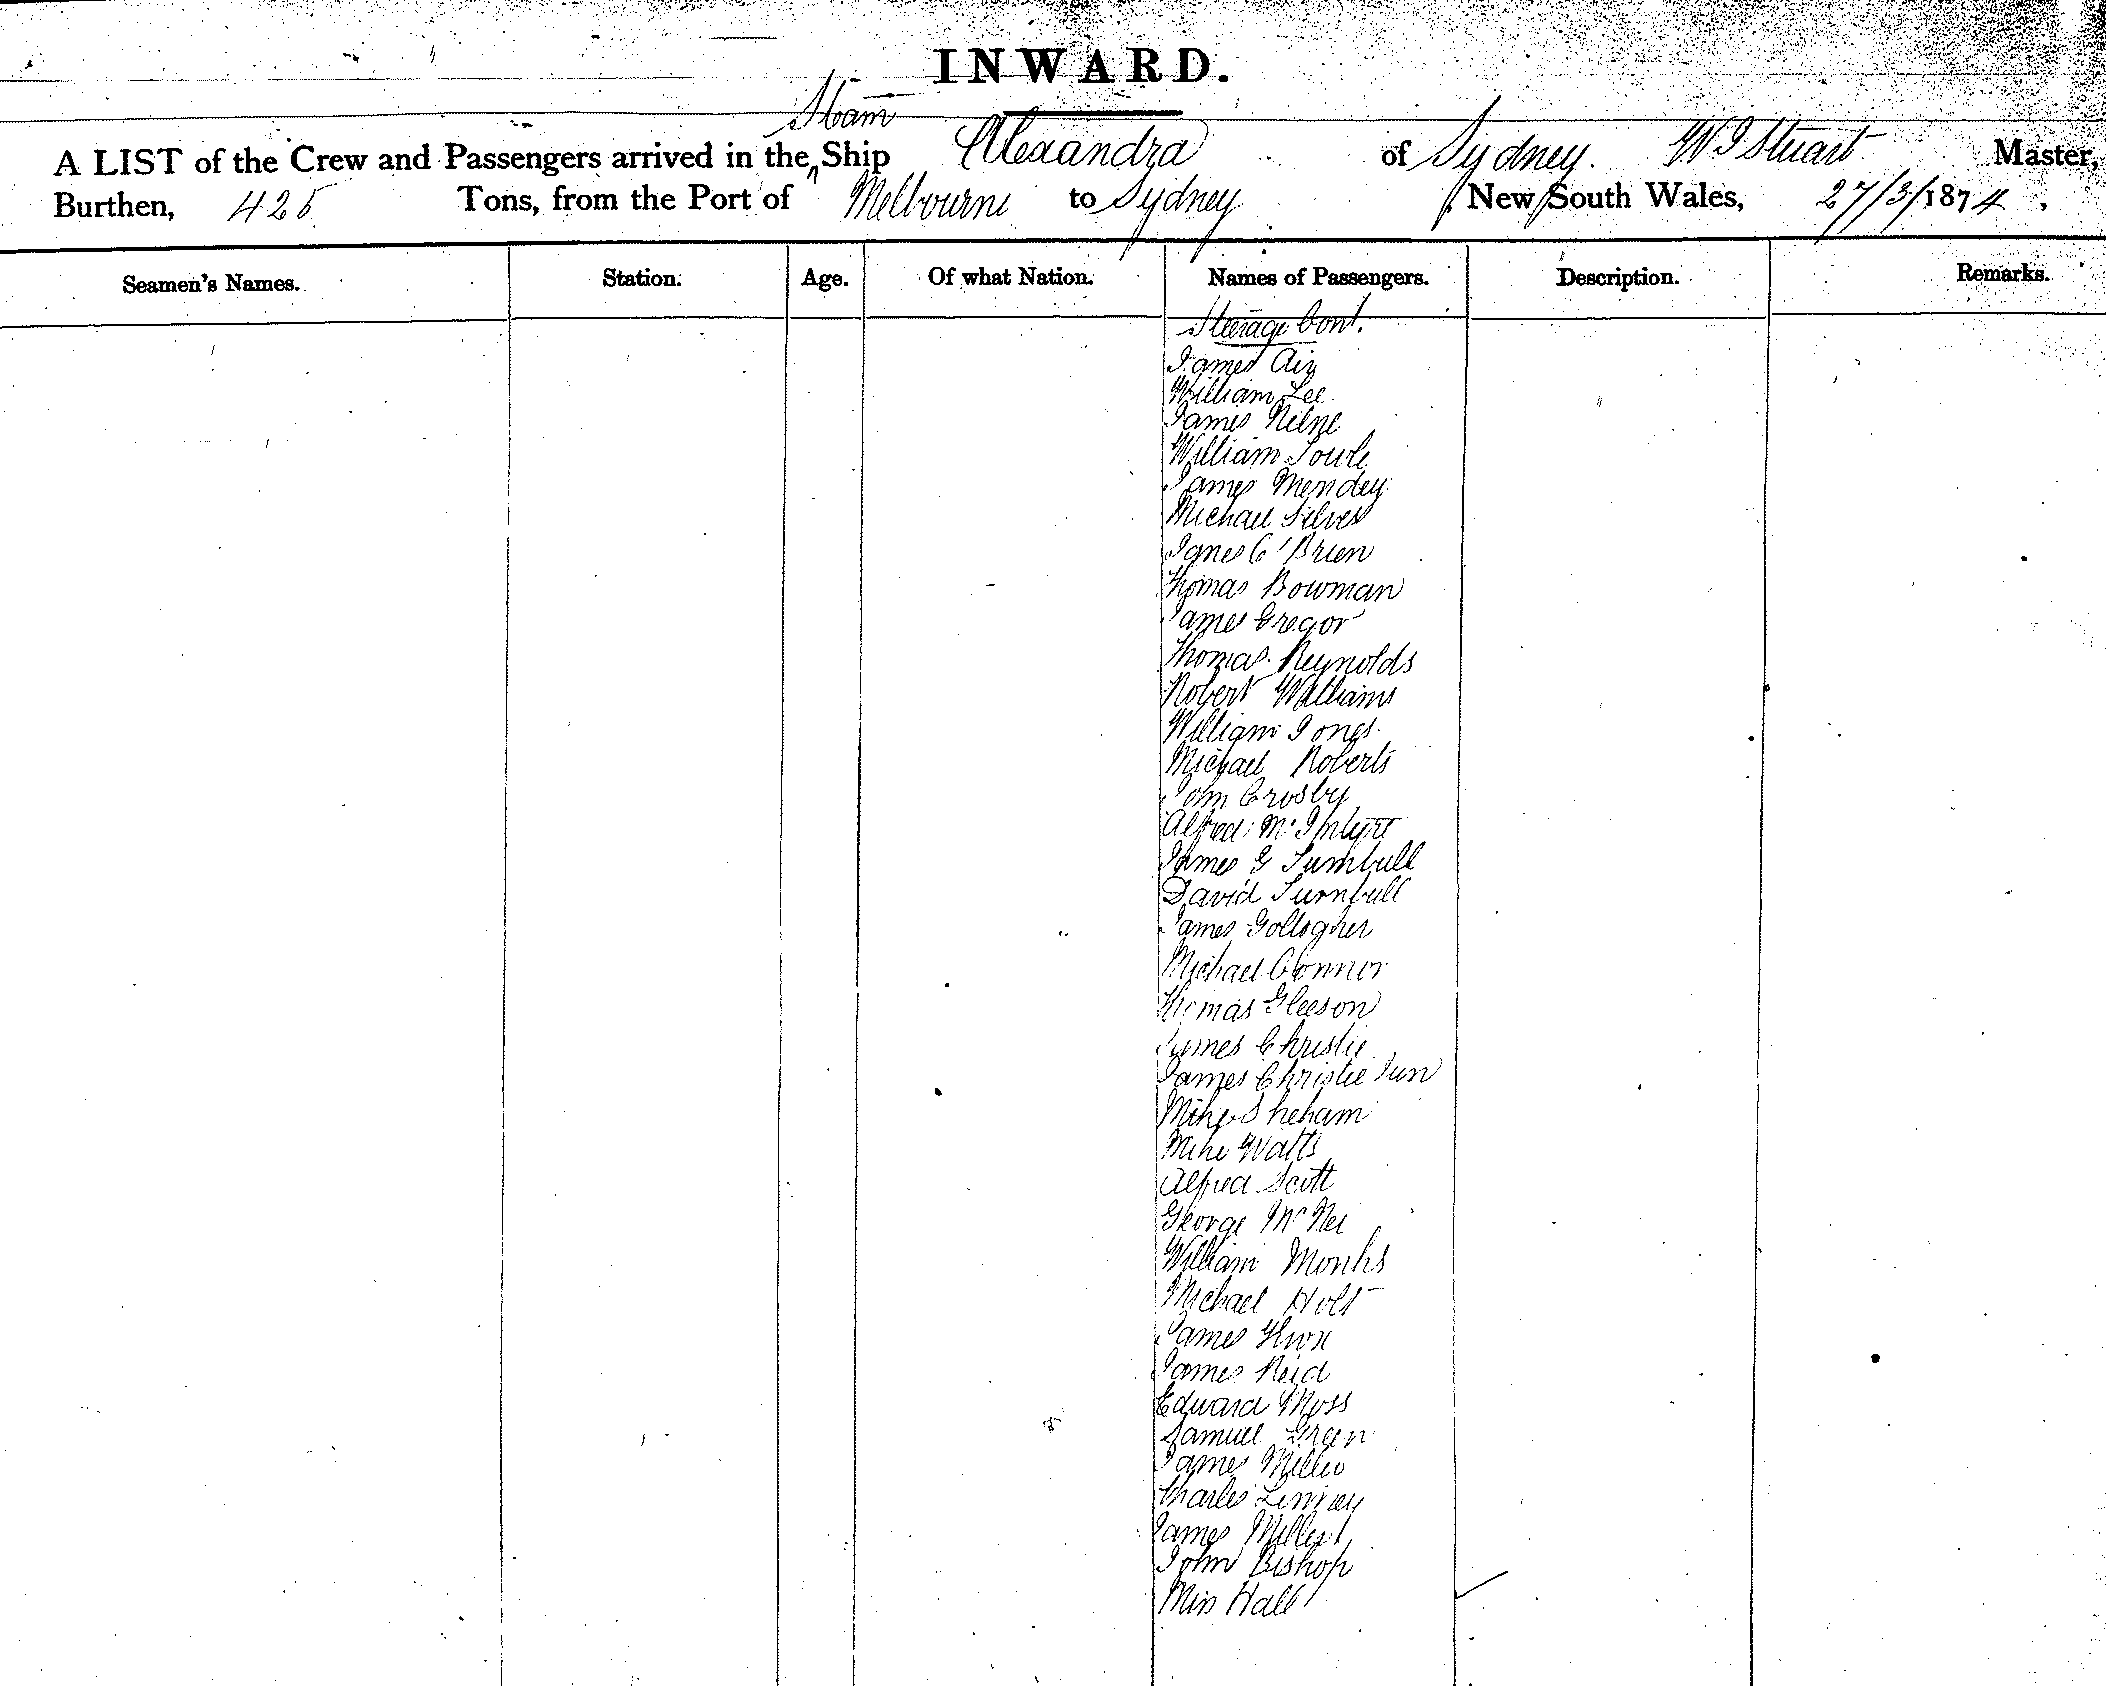 INWARD.
A LIST of the Crew and Passengers arrived in the Steam Ship Alexandra of Sydney. W J Stuart Master,
Burthen, 425 Tons, from the Port of Melbourne to Sydney New South Wales, 27/3/1874.
Seamen's Names. Station. Age. Of what Nation. Names of Passengers. Description. Remarks.
Steerage Cont.
James Air
William Lee
James Milne
William
James
Michael Silves
O'Brien
Thomas Bowman
James Gregor
Thomas Reynolds
Robert Williams
William Jones
Michael Roberts
John Crosby
Alfred McIntyre
James G Turnbull
David Turnbull
James Gollogher
Michael OConnor
Thomas Gleeson
James Christie
James Christie Jun
Mike Sheham
Mike Watts
Alfred Scott
George McNei
William Monks
Michael Holt
James Knox
James Reid
Edward Moss
Samuel Green
James
Charles
James
John Bishop
Miss Hall